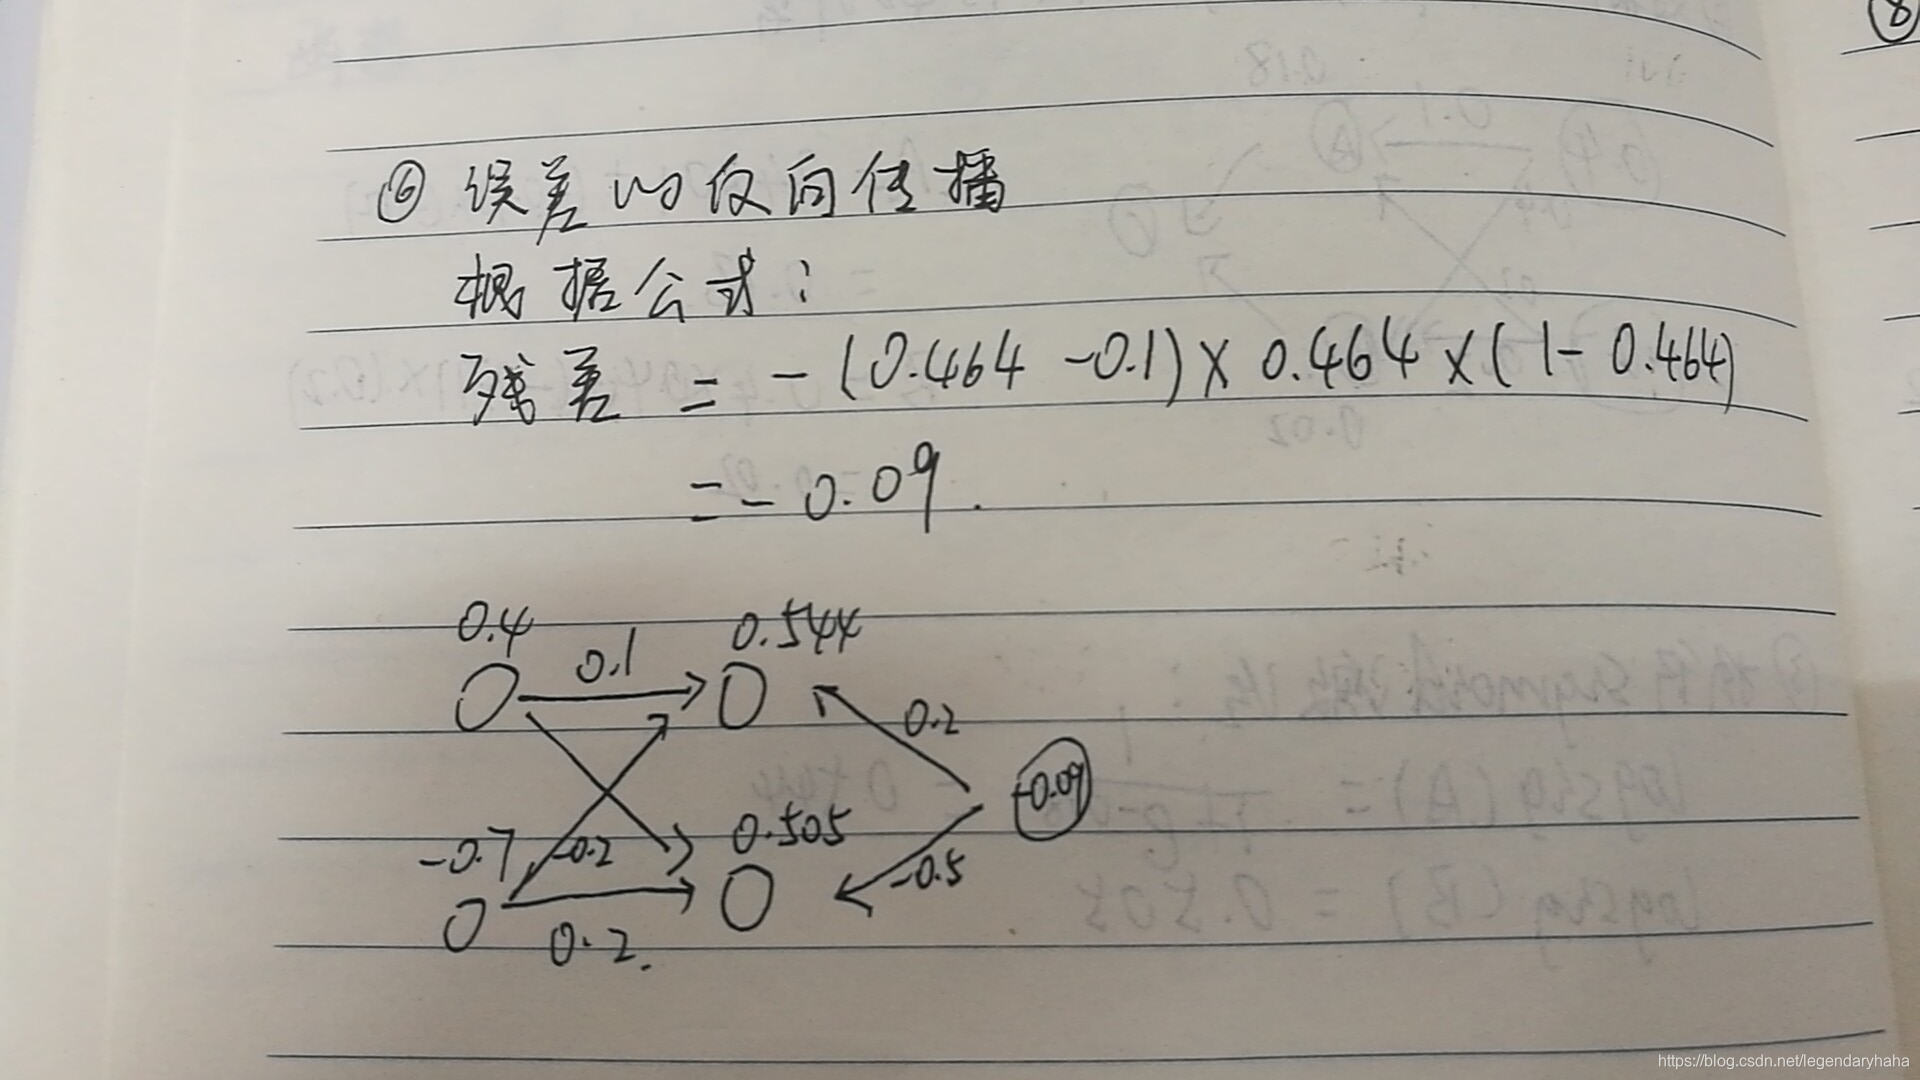 ⑧
⑥ 误差的反向传播
根据公式:
残差 = -(0.464-0.1)×0.464×(1-0.464)
= -0.09.
0.4
0.1
0.544
0.2
-0.09
-0.7
-0.2
0.505
-0.5
0.2.
https://blog.csdn.net/legendaryhaha